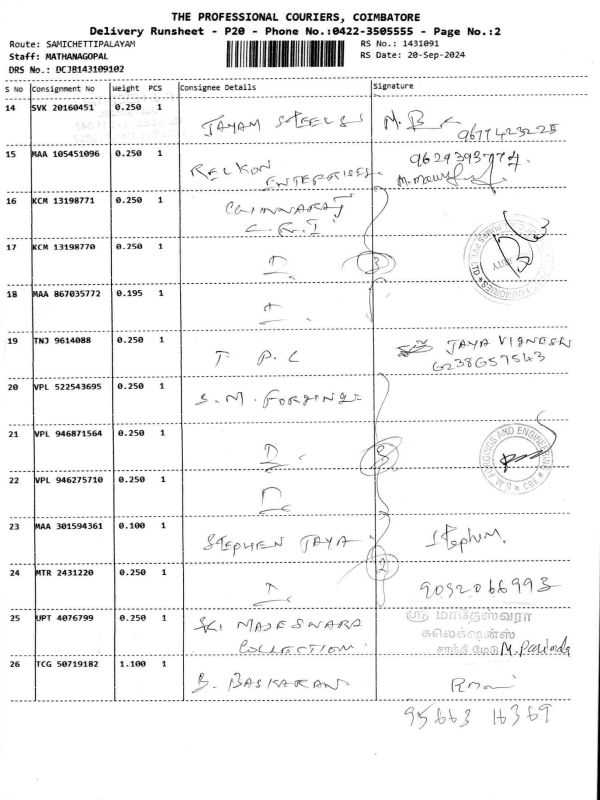 THE PROFESSIONAL COURIERS, COIMBATORE
Delivery Runsheet - P20 - Phone No.:0422-3505555 - Page No.:2
Route: SAMICHETTIPALAYAM RS No.: 1431091
Staff: MATHANAGOPAL RS Date: 20-Sep-2024
DRS No.: DCJB143109102
S No Consignment No Weight PCS Consignee Details Signature
14 SVK 20160451 0.250 1 JAYAM STEELS M. B 9677423225
15 MAA 105451096 0.250 1 RELKON ENTERPRISES. 9629393774.
16 KCM 13198771 0.250 1 CHINNARAJ
17 KCM 13198770 0.250 1 3
18 MAA 867035772 0.195 1
19 TNJ 9614088 0.250 1 T P L JAYA VIGNESH
6238657543
20 VPL 522543695 0.250 1 S. M. FORGINGS
21 VPL 946871564 0.250 1 3 S.M. FORGINGS AND ENGINEERING * CBE *
22 VPL 946275710 0.250 1
23 MAA 301594361 0.100 1 STEPHEN JAYA Stephen.
24 MTR 2431220 0.250 1 2 9092066993
25 UPT 4076799 0.250 1 SRI MAJESWARA ஸ்ரீ மாதேஸ்வரா
COLLECTION. கலெக்ஷன்ஸ்
சாந்தி மேடு
26 TCG 50719182 1.100 1 B. BASKARAN
95663 16369